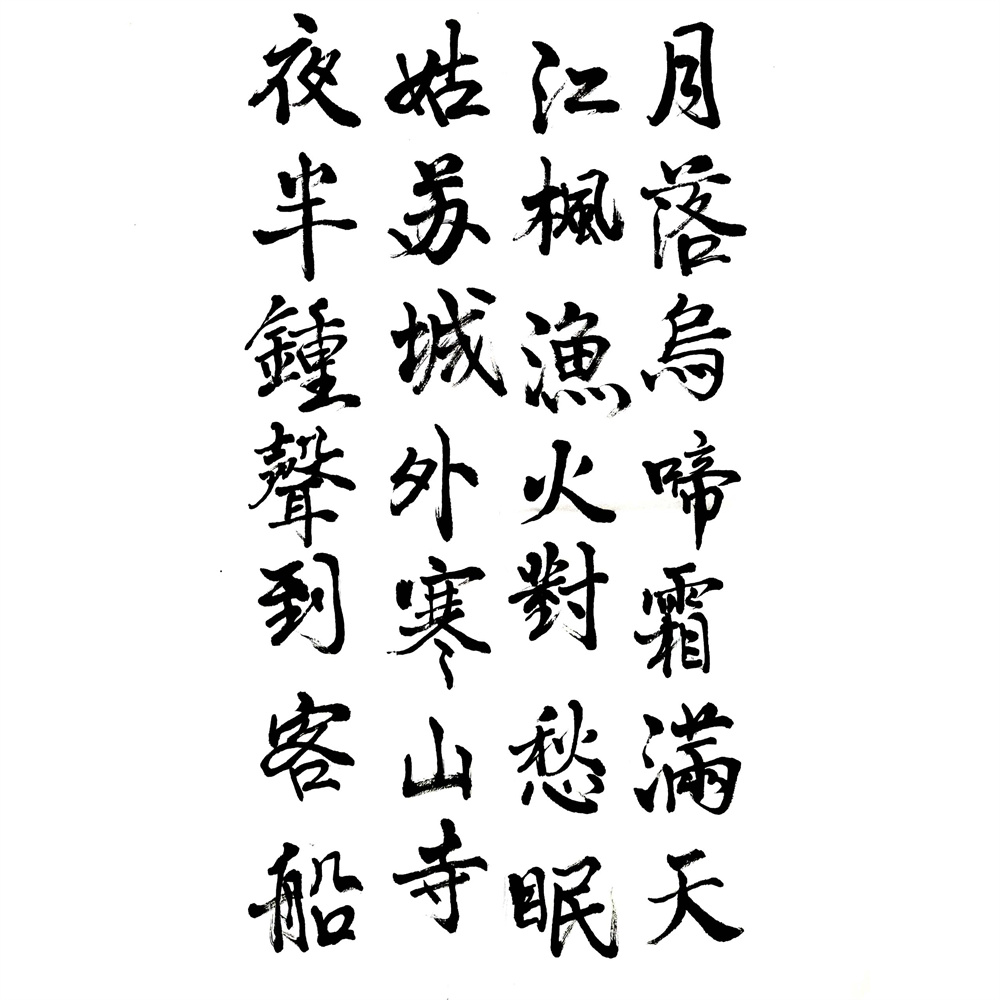 月落烏啼霜滿天
江楓漁火對愁眠
姑苏城外寒山寺
夜半鍾聲到客船